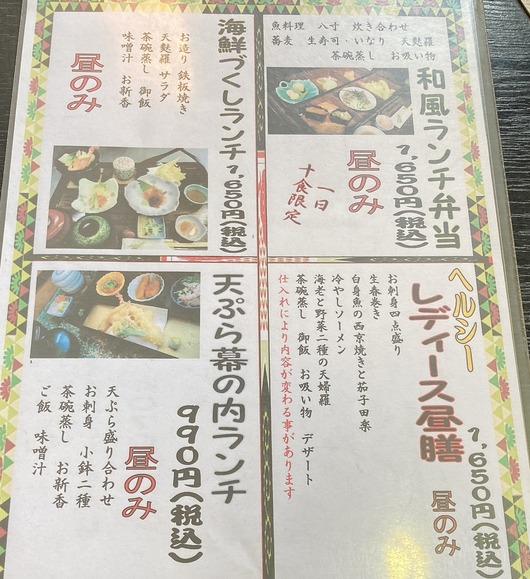 魚料理 八寸 炊き合わせ
蕎麦 生寿司・いなり 天麩羅
茶碗蒸し お吸い物
和風ランチ弁当
1,650円(税込)
昼のみ
一日
十食限定
海鮮づくしランチ
1,650円(税込)
お造り 鉄板焼き
天麩羅 サラダ
茶碗蒸し 御飯
味噌汁 お新香
昼のみ
ヘルシー
レディース昼膳
1,650円(税込)
昼のみ
お刺身四点盛り
生春巻き
白身魚の西京焼きと茄子田楽
冷やしソーメン
海老と野菜二種の天婦羅
茶碗蒸し 御飯 お吸い物 デザート
仕入れにより内容が変わる事があります
天ぷら幕の内ランチ
990円(税込)
昼のみ
天ぷら盛り合わせ
お刺身 小鉢二種
茶碗蒸し お新香
ご飯 味噌汁